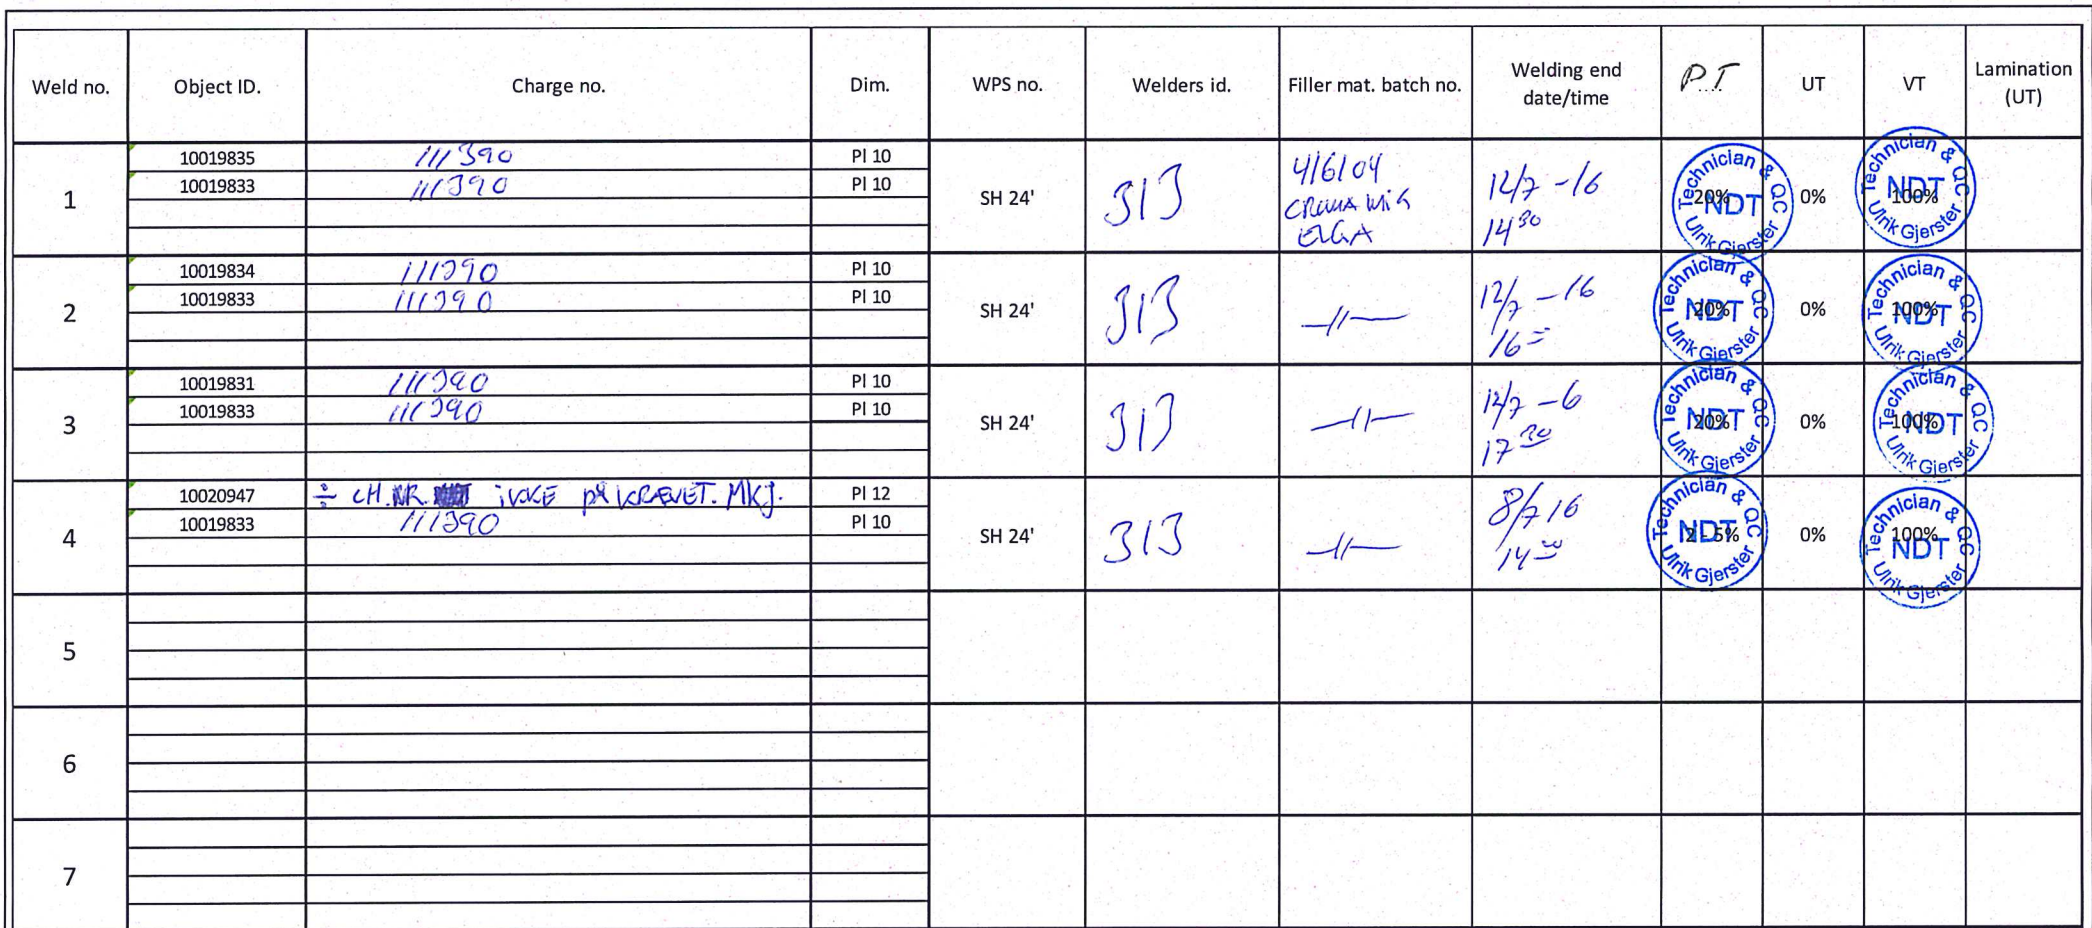 Weld no. Object ID. Charge no. Dim. WPS no. Welders id. Filler mat. batch no. Welding end date/time P.T. UT VT Lamination (UT)
1
10019835 111390 Pl 10
10019833 111390 Pl 10
SH 24' 313
416104
CROMAMIG
ELGA
12/7 -16
14 30
20% 0% 100%
Technician & QC
NDT
Ulrik Gjerster
Technician & QC
NDT
Ulrik Gjerster
2
10019834 111390 Pl 10
10019833 111390 Pl 10
SH 24' 313 -//-
12/7 -16
16 =
20% 0% 100%
Technician & QC
NDT
Ulrik Gjerster
Technician & QC
NDT
Ulrik Gjerster
3
10019831 111390 Pl 10
10019833 111390 Pl 10
SH 24' 313 -//-
12/7 -6
17 30
20% 0% 100%
Technician & QC
NDT
Ulrik Gjerster
Technician & QC
NDT
Ulrik Gjerster
4
10020947 ÷ CH.NR. iKKE på KRÆVET. MKJ. Pl 12
10019833 111390 Pl 10
SH 24' 313 -//-
8/7 16
14
2 - 5% 0% 100%
Technician & QC
NDT
Ulrik Gjerster
Technician & QC
NDT
Ulrik Gjerster
5
6
7